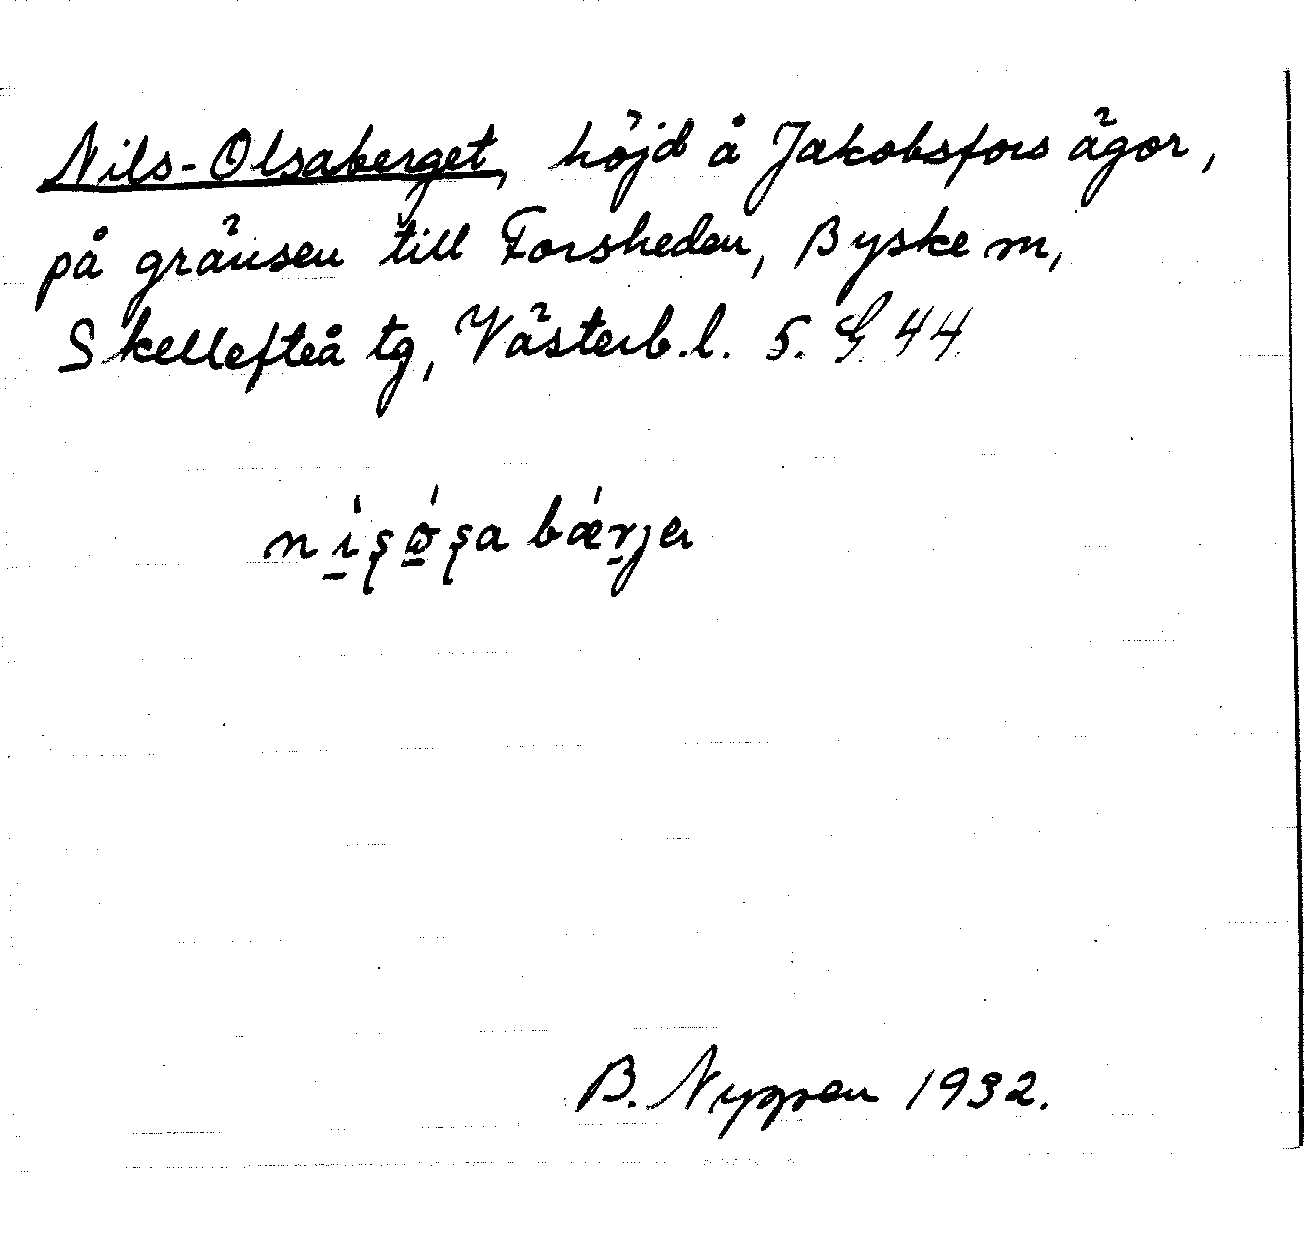 Nils-Olsaberget, höjd å Jakobsfors ägor,
på gränsen till Forsheden, Byske m,
Skellefteå tg, Västerb.l. 5. 44
bǽrjer
B. Nygren 1932.